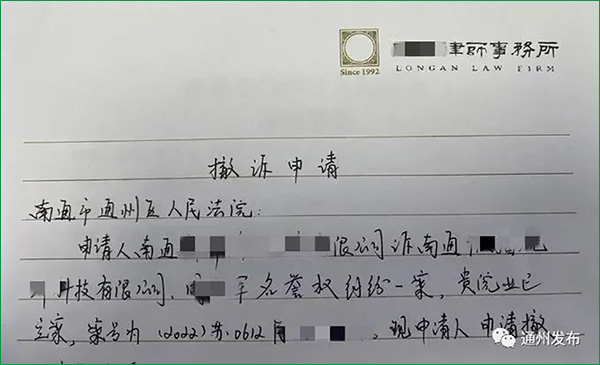 律师事務所
Since 1992
LONGAN LAW FIRM
撤诉申请
南通市通州区人民法院:
申请人南通 限公司诉南通
科技有限公司、 军名誉权纠纷一案,贵院业已
立案,案号为(2022)苏0612民 。现申请人申请撤
通州发布